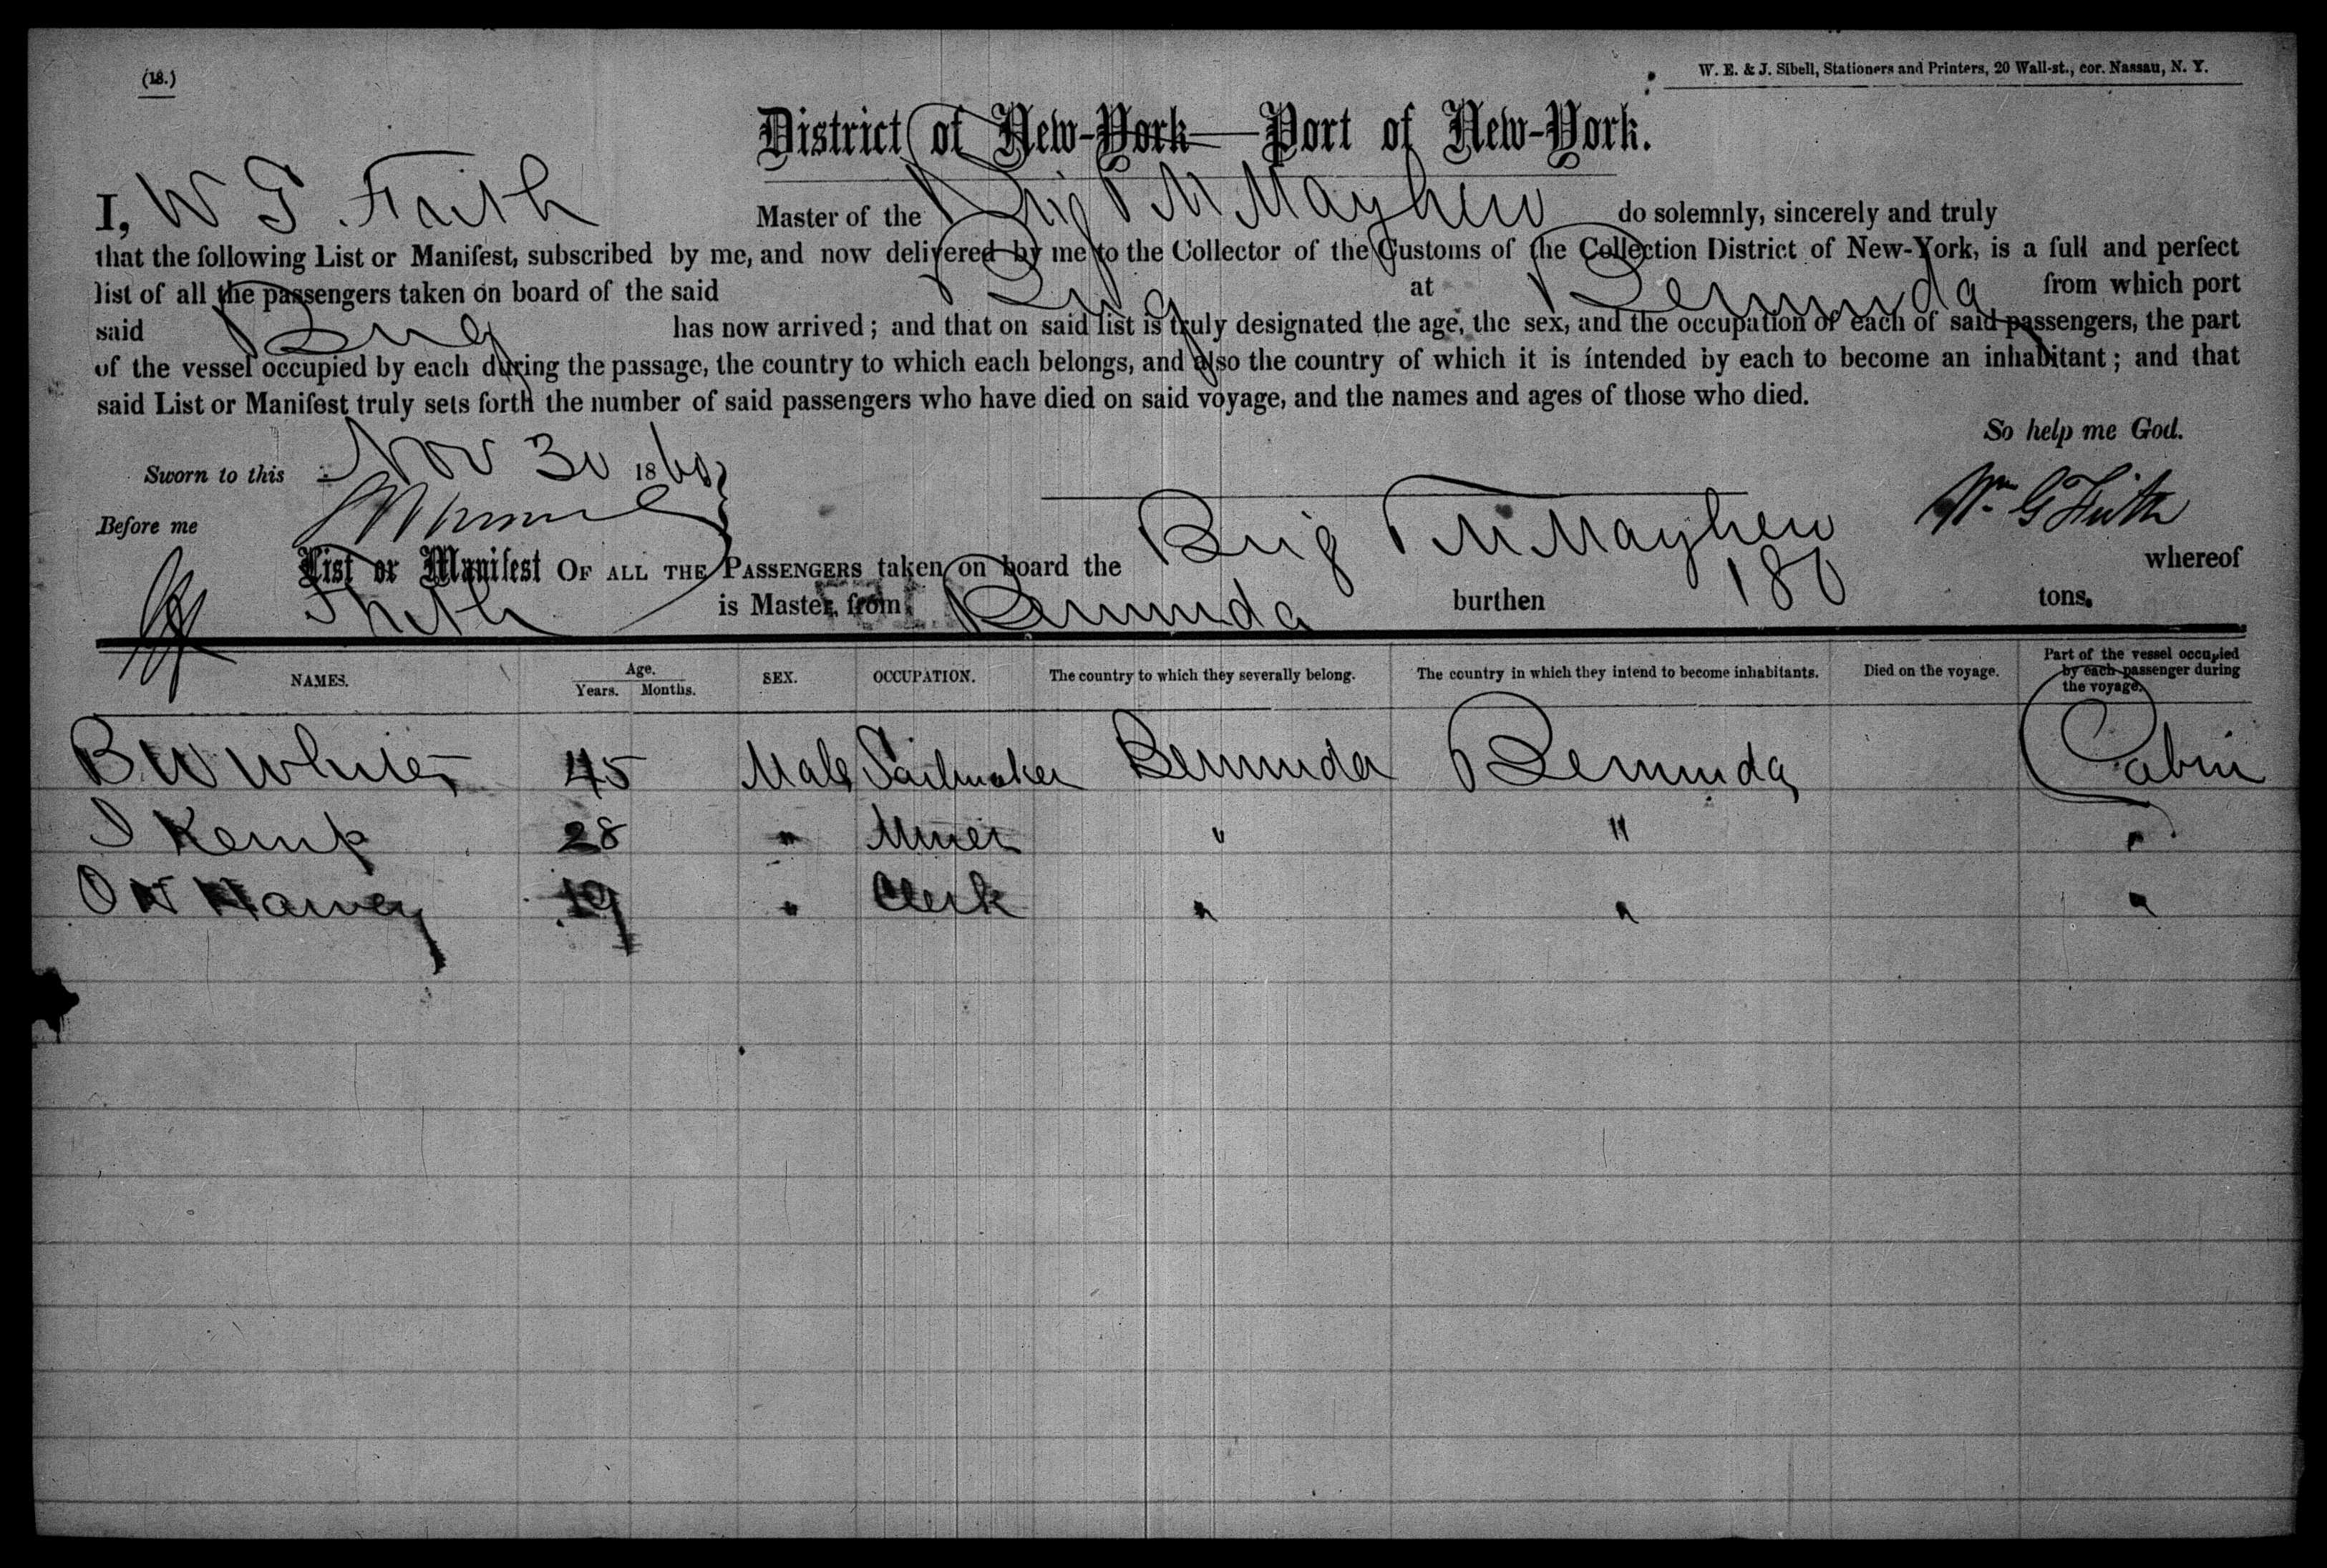 (18.)
W. E. & J. Sibell, Stationers and Printers, 20 Wall-st., cor. Nassau, N. Y.
District of New-York—Port of New-York.
I, W G Frith Master of the Brig T M Mayhew do solemnly, sincerely and truly
that the following List or Manifest, subscribed by me, and now delivered by me to the Collector of the Customs of the Collection District of New-York, is a full and perfect
list of all the passengers taken on board of the said Brig at Bermuda from which port
said Brig has now arrived; and that on said list is truly designated the age, the sex, and the occupation of each of said passengers, the part
of the vessel occupied by each during the passage, the country to which each belongs, and also the country of which it is intended by each to become an inhabitant; and that
said List or Manifest truly sets forth the number of said passengers who have died on said voyage, and the names and ages of those who died.
So help me God.
Sworn to this Nov 30 1860
Before me Wm G Frith
List or Manifest OF ALL THE PASSENGERS taken on board the Brig T M Mayhew whereof
Frith is Master, from Bermuda burthen 180 tons.
NAMES. Age. Years. Months. SEX. OCCUPATION. The country to which they severally belong. The country in which they intend to become inhabitants. Died on the voyage. Part of the vessel occupied by each passenger during the voyage.
B W White 45 Male Sailmaker Bermuda Bermuda Cabin
J Kemp 28 " Miner " " "
O W Harvey 19 " Clerk " " "